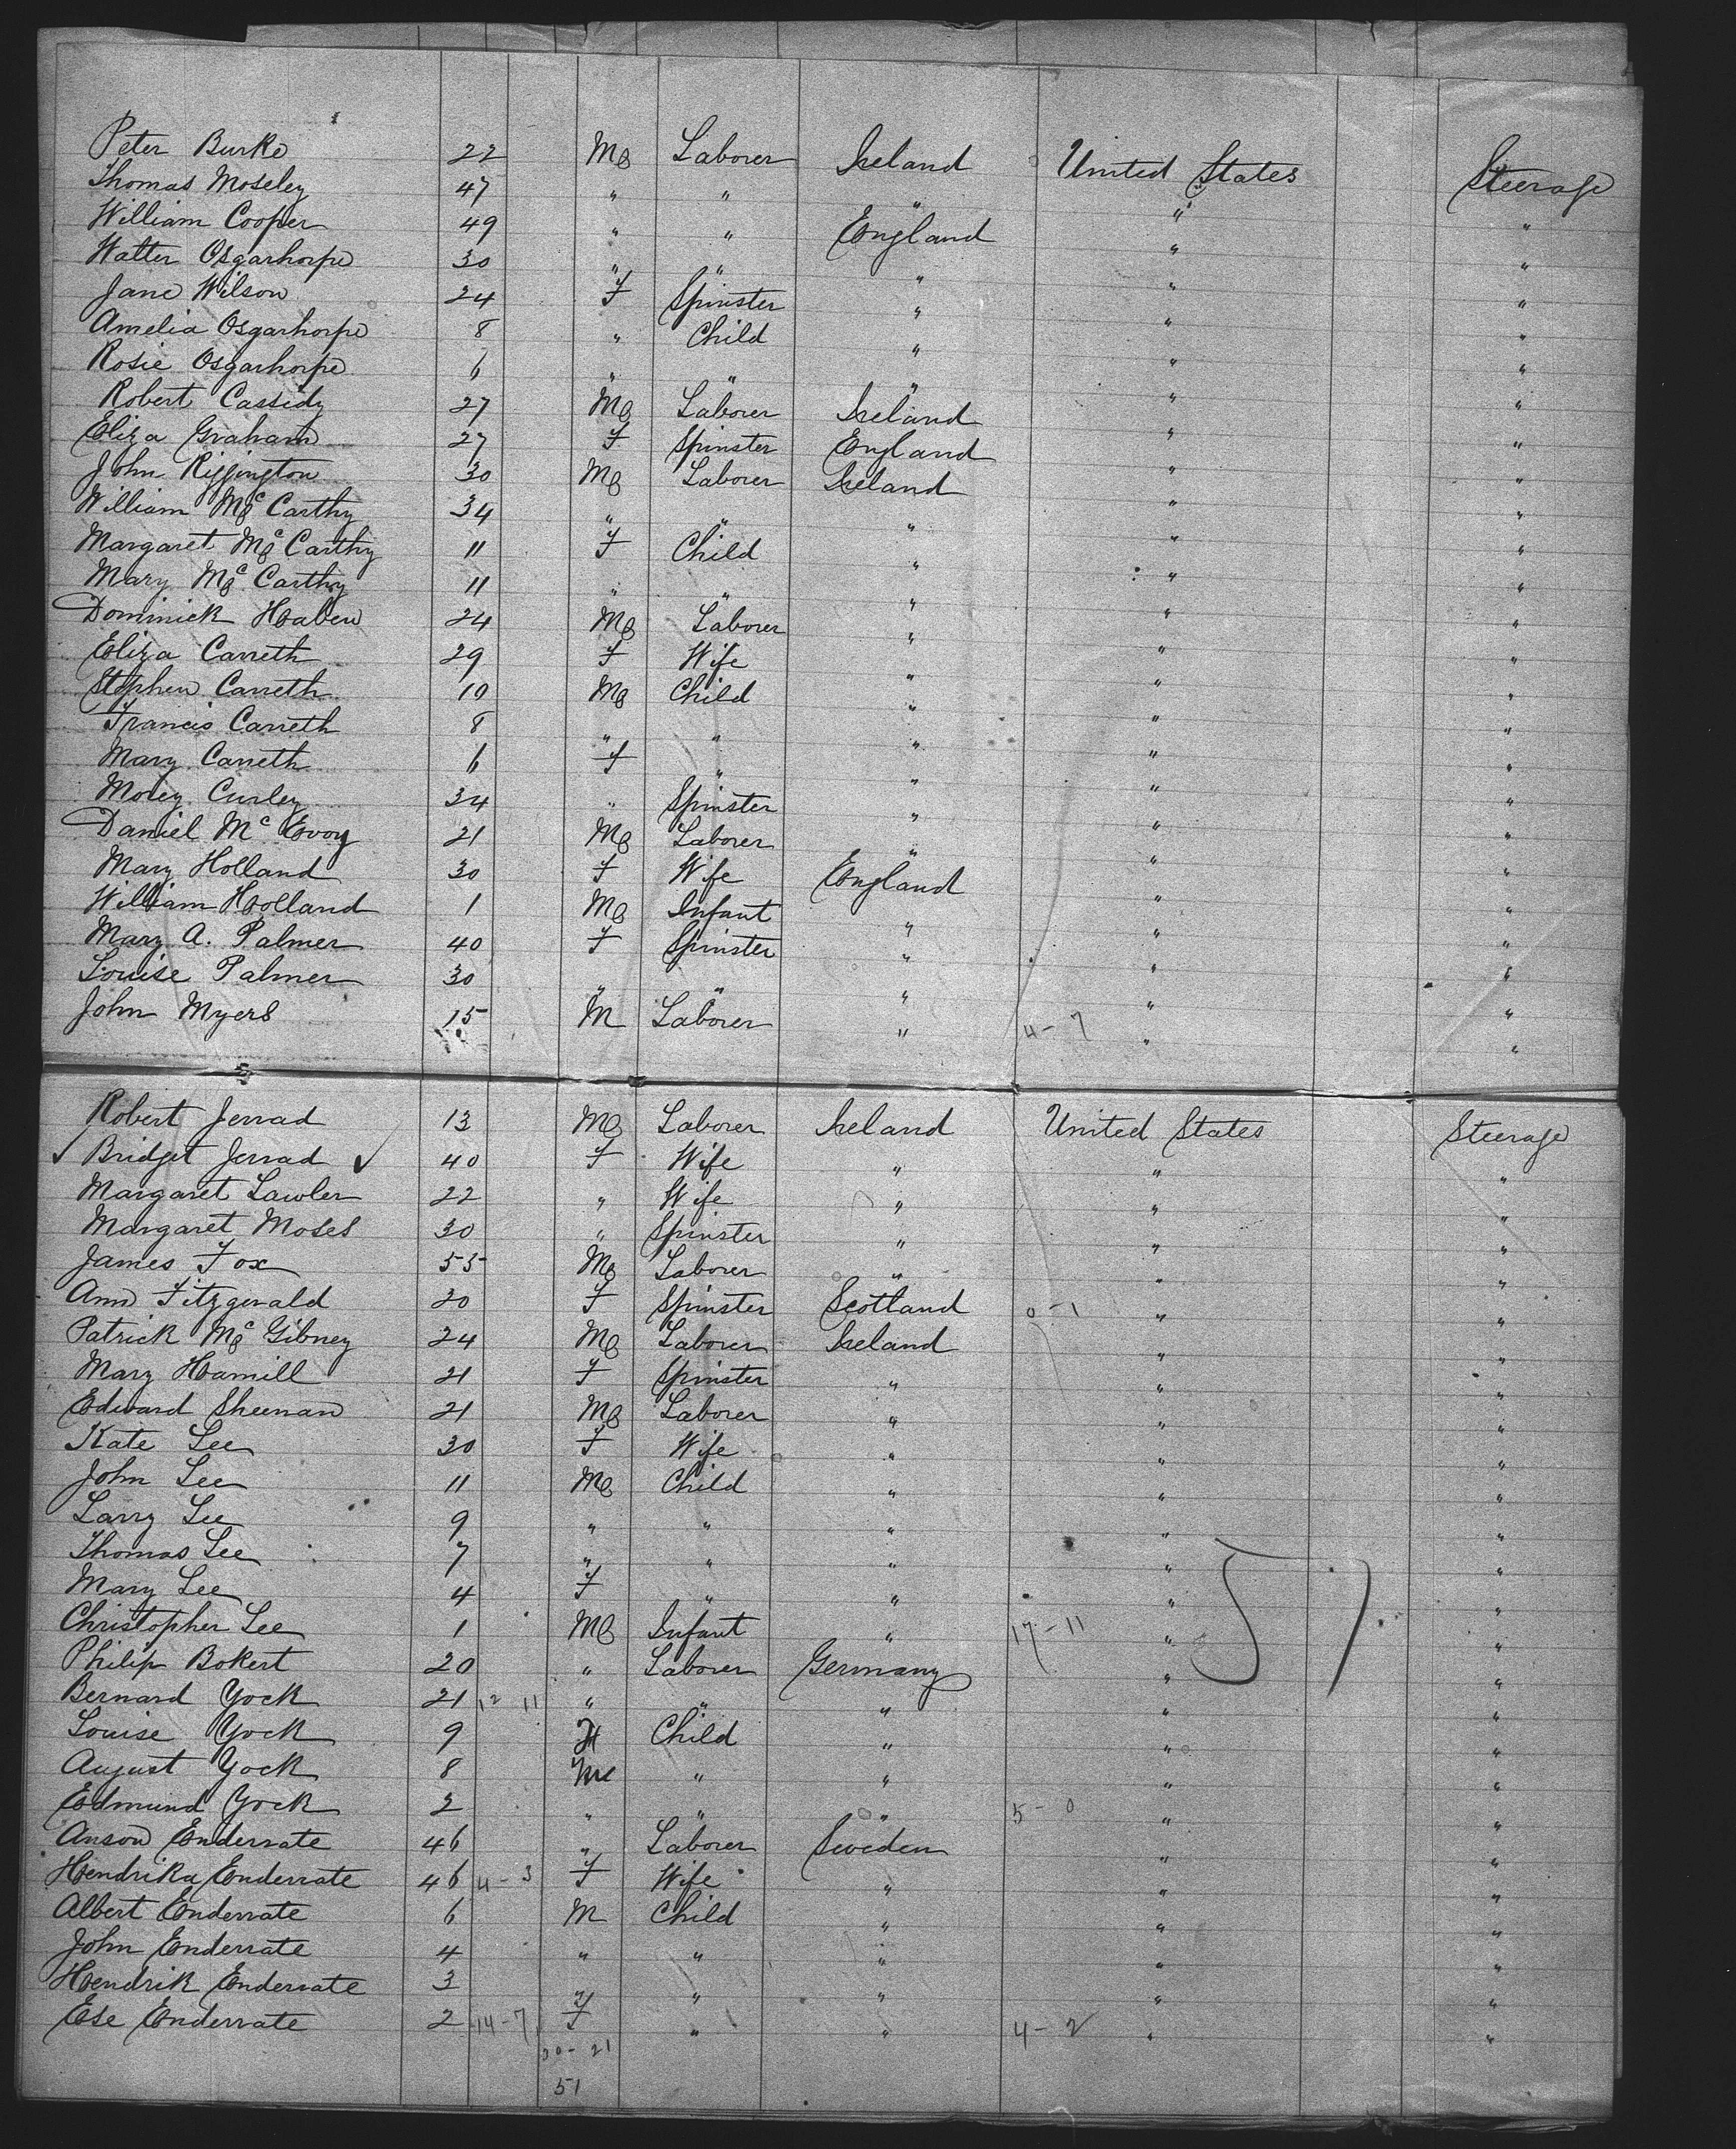 Peter Burke 22 M Laborer Ireland United States Steerage
Thomas Moseley 47 " " " " "
William Cooper 49 " " England " "
Walter Osgarhorpe 30 " " " " "
Jane Wilson 24 F Spinster " " "
Amelia Osgarhorpe 8 " Child " " "
Rosie Osgarhorpe 6 " " " " "
Robert Cassidy 27 M Laborer Ireland " "
Eliza Graham 27 F Spinster England " "
John Riffington 30 M Laborer Ireland " "
William McCarthy 34 " " " " "
Margaret McCarthy 11 F Child " " "
Mary McCarthy 11 " " " " "
Dominick Haben 24 M Laborer " " "
Eliza Carreth 29 F Wife " " "
Stephen Carreth 10 M Child " " "
Francis Carreth 8 " " " " "
Mary Carreth 6 F " " " "
Morey Curley 34 " Spinster " " "
Daniel McEvoy 21 M Laborer " " "
Mary Holland 30 F Wife England " "
William Holland 1 M Infant " " "
Mary A. Palmer 40 F Spinster " " "
Louise Palmer 30 " " " " "
John Myers 15 M Laborer " 4-7 " "
Robert Jerrad 13 M Laborer Ireland United States Steerage
✓ Bridget Jerrad ✓ 40 F Wife " " "
Margaret Lawler 22 " Wife " " "
Margaret Moses 30 " Spinster " " "
James Fox 55 M Laborer " " "
Ann Fitzgerald 20 F Spinster Scotland 0-1 " "
Patrick McGibney 24 M Laborer Ireland " "
Mary Hamill 21 F Spinster " " "
Edward Sheenan 21 M Laborer " " "
Kate Lee 30 F Wife " " "
John Lee 11 M Child " " "
Larry Lee 9 " " " " "
Thomas Lee 7 " " " " "
Mary Lee 4 F " " " "
Christopher Lee 1 M Infant " 17-11 " 51 "
Philip Bokert 20 " Laborer Germany " "
Bernard Yock 21 12 11 " " " " "
Louise Yock 9 F Child " " "
August Yock 8 M " " " "
Edmund Yock 2 " " " 5-0 " "
Anson Enderrate 46 " Laborer Sweden " "
Hendrika Enderrate 46 4-3 F Wife " " "
Albert Enderrate 6 M Child " " "
John Enderrate 4 " " " " "
Hendrik Enderrate 3 " " " " "
Ese Enderrate 2 14-7 F " " 4-2 " "
30-21
51